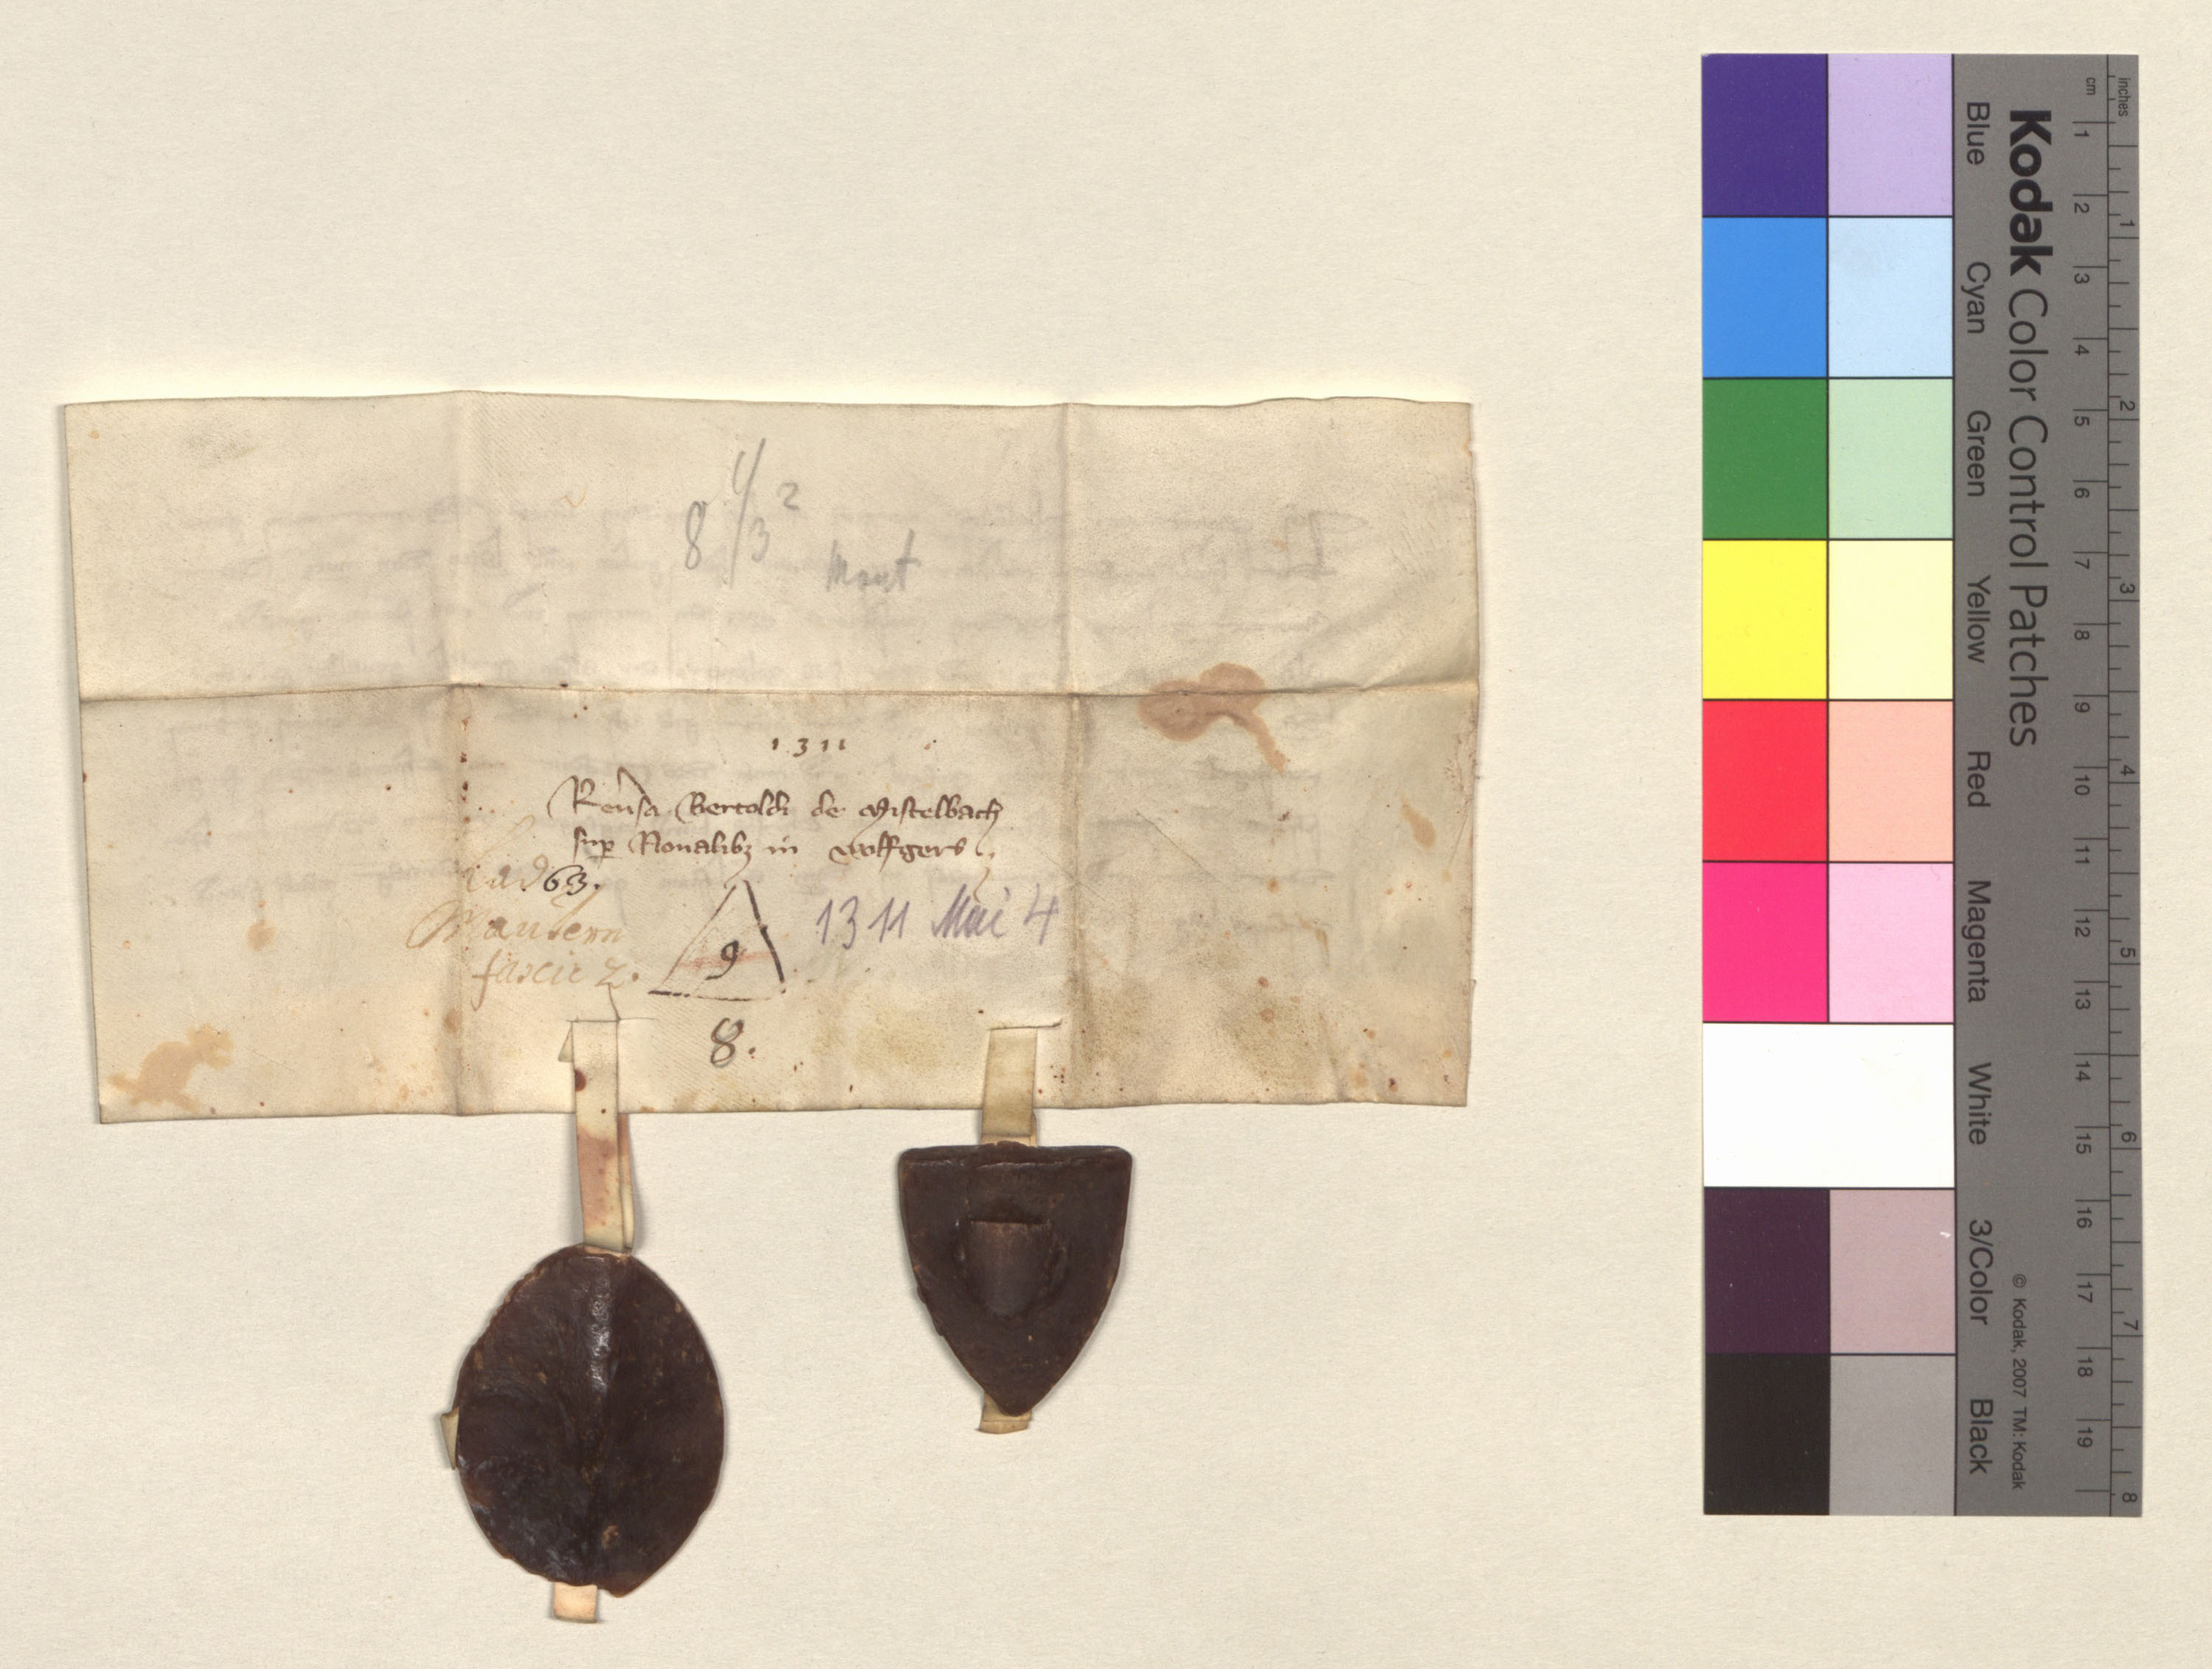 8 4/3 2
Maut
1311
Reuſa Bertoldi de Mistelbach
sup Noualibz in wolfgers
Lad 63.
Mautern
fascic 2.
9
1311 Mai 4
8.
Kodak Color Control Patches
Blue Cyan Green Yellow Red Magenta White 3/Color Black
© Kodak, 2007 TM: Kodak
cm 1 2 3 4 5 6 7 8 9 10 11 12 13 14 15 16 17 18 19
inches 1 2 3 4 5 6 7 8